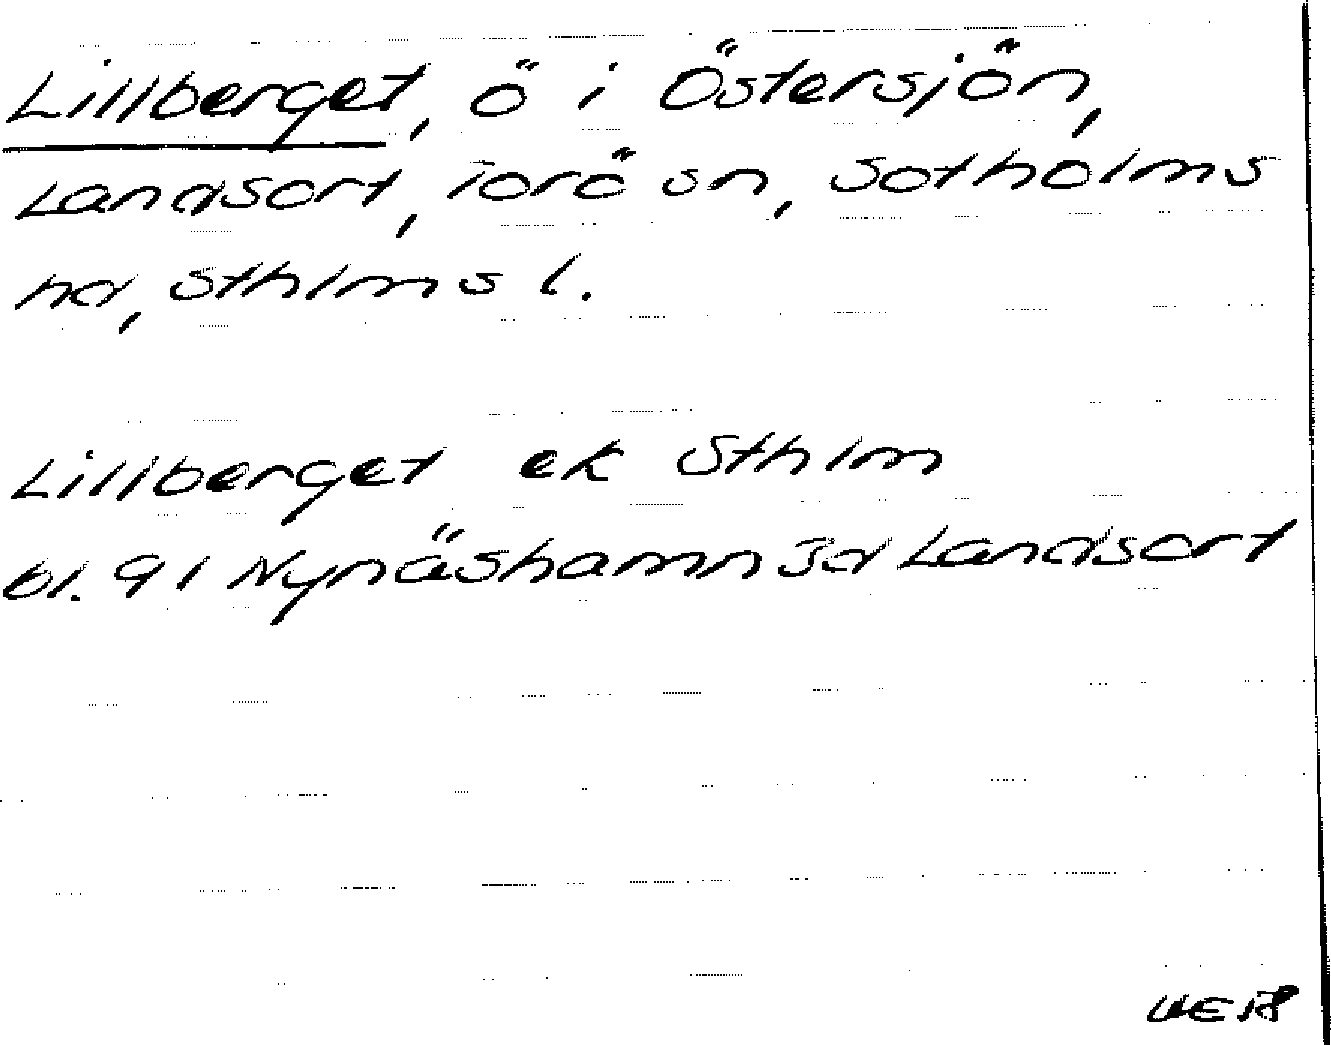 Lillberget, ö i Östersjön,
Landsort, Torö sn, Sotholms
hd, Sthlms l.
Lillberget ek Sthlm
bl. 91 Nynäshamn 3d Landsort